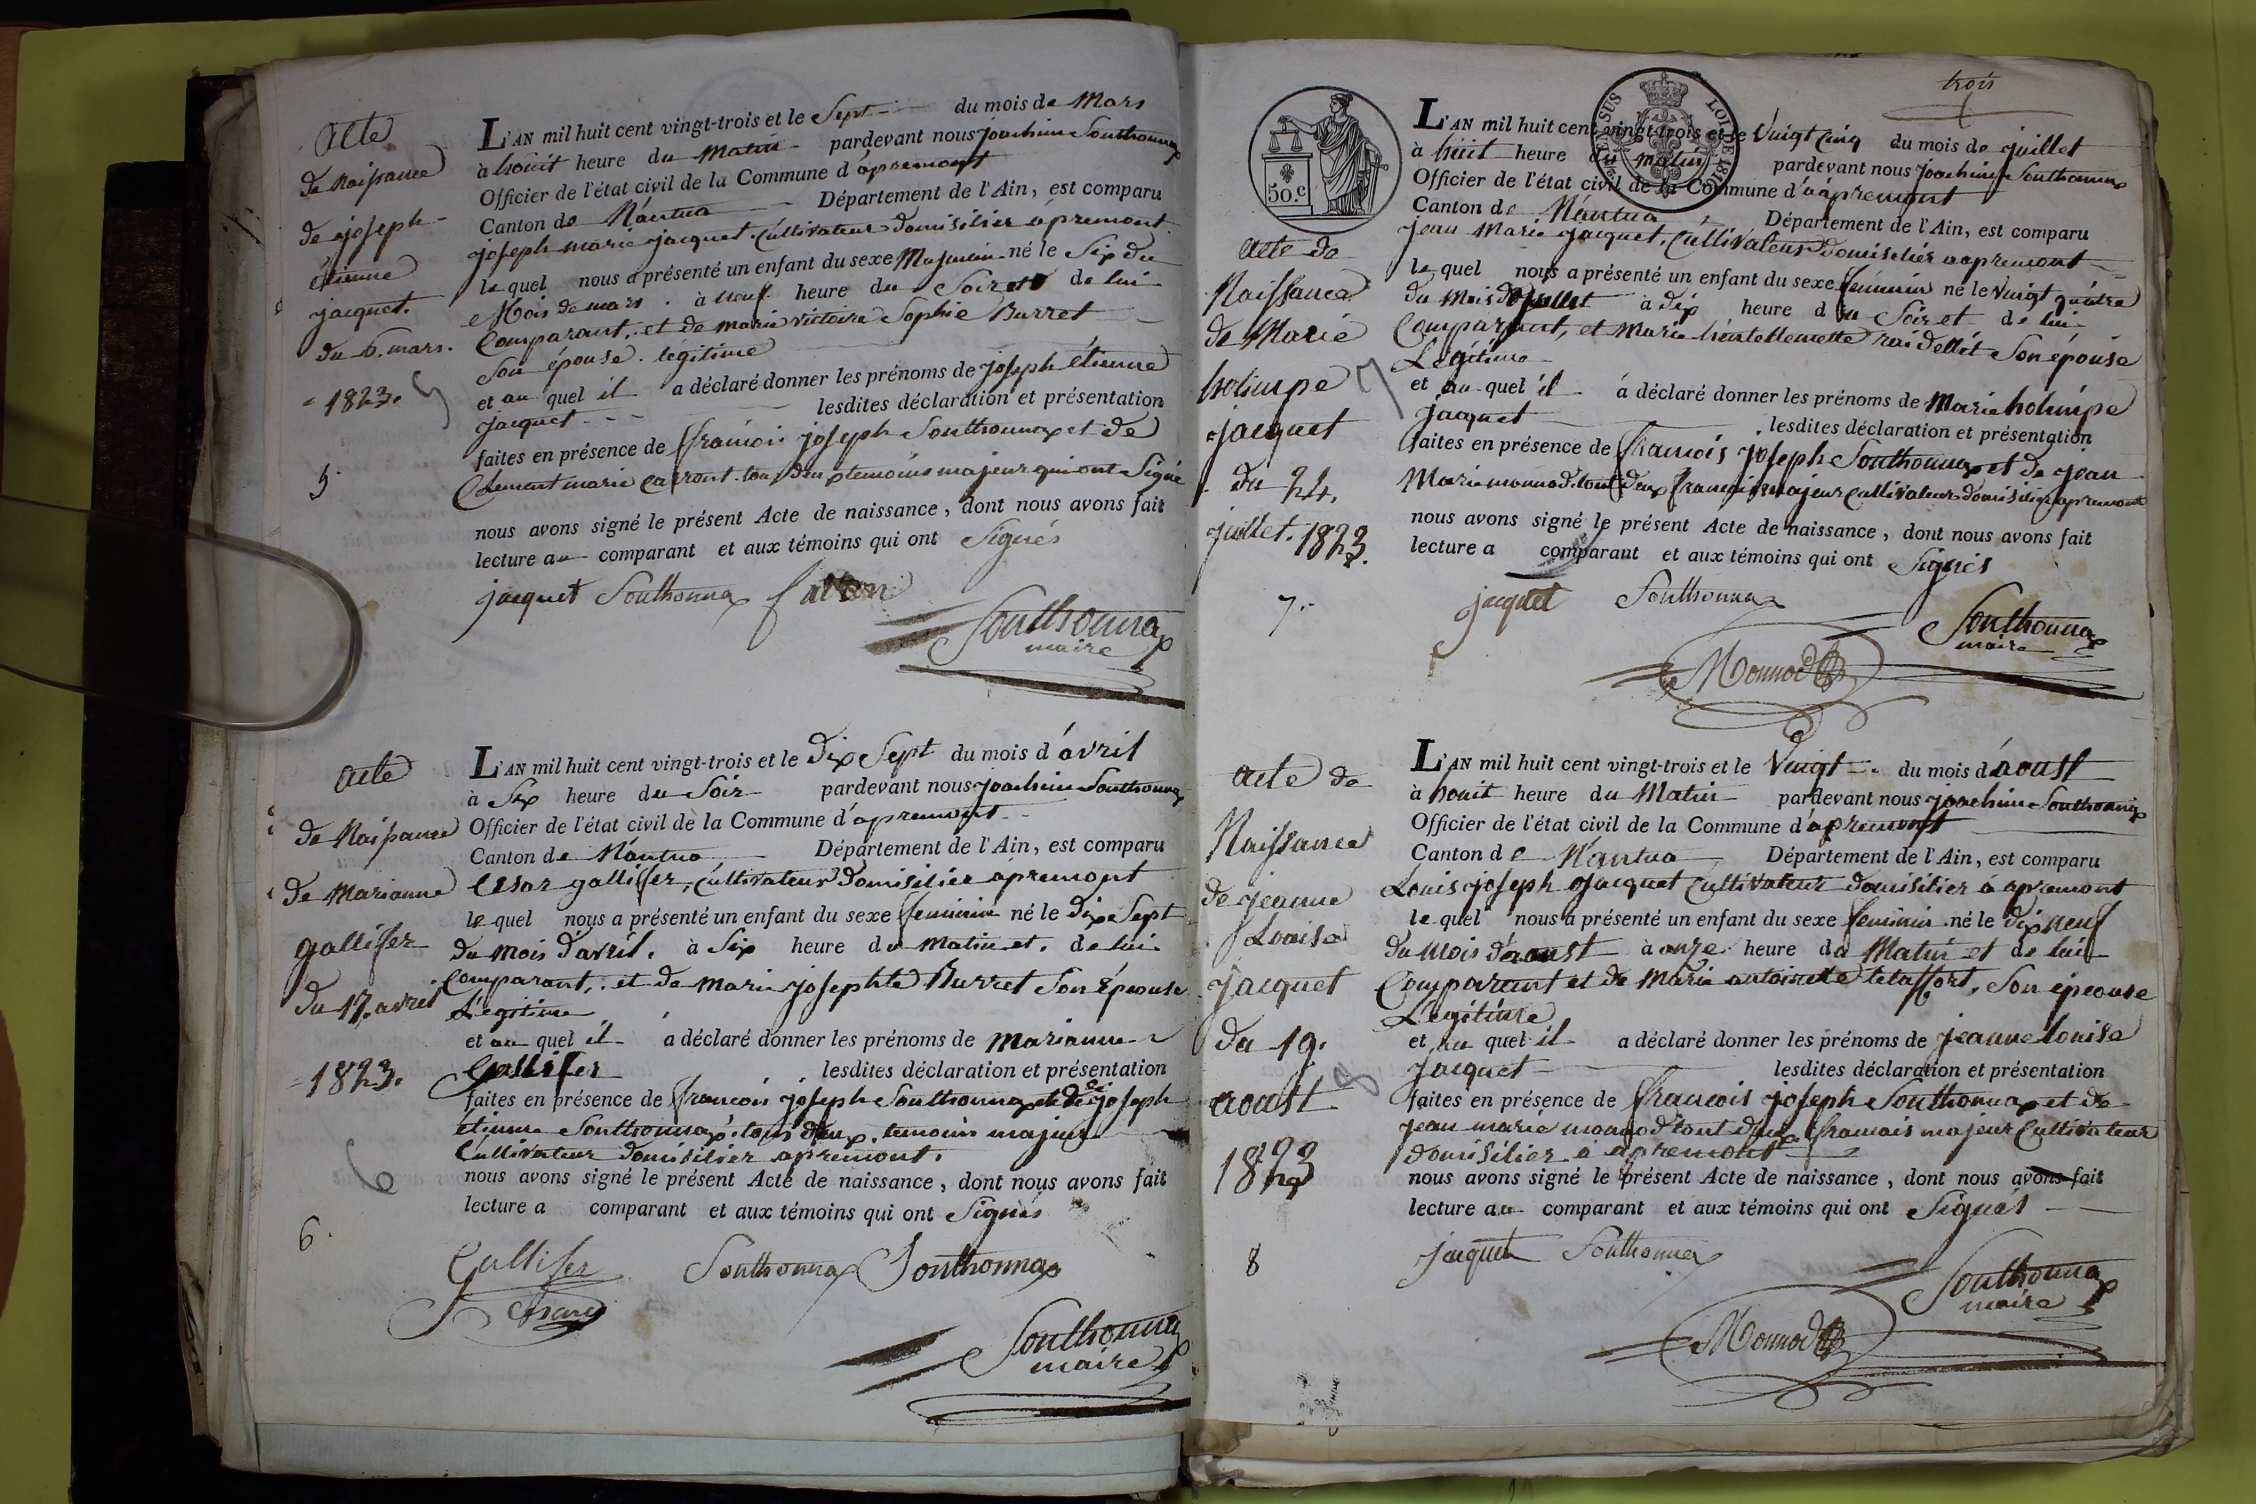 acte
de Naissance
de joseph
étienne
jacquet.
du 6. mars.
1823.
5
5.
L'AN mil huit cent vingt-trois et le Sept du mois de Mars
à houit heure du Matin pardevant nous joachim Southonnax
Officier de l'état civil de la Commune d'apremont
Canton de Nantua Département de l'Ain, est comparu
joseph marie jacquet. Cultivateur domisilier apremont.
le quel nous a présenté un enfant du sexe Masculin né le Six du
Mois de mars. à neuf heure du Soir et de lui
Comparant, et de marie victoire Sophie Burret
Son épouse. légitime
et au quel il a déclaré donner les prénoms de joseph étienne
jacquet lesdites déclaration et présentation
faites en présence de françois joseph Southonnax et de
Clement marie tous deux temoins majeur qui ont Signé
nous avons signé le présent Acte de naissance, dont nous avons fait
lecture au comparant et aux témoins qui ont Signés
jacquet Southonnax
Southonnax
maire
acte
de Naissance
de Marianne
galliffer
du 17. avril
1823.
6
6.
L'AN mil huit cent vingt-trois et le Dix Sept du mois d'avril
à Six heure du Soir pardevant nous joachim Southonnax
Officier de l'état civil de la Commune d'apremont
Canton de Nantua Département de l'Ain, est comparu
Cesar galliffer, Cultivateur domisilier apremont
le quel nous a présenté un enfant du sexe feminin né le dix Sept
du mois d'avril. à Six heure du Matin et. de lui
Comparant, et de marie josephte Burret Son épeouse
Légitime
et au quel il a déclaré donner les prénoms de Marianne
Galliffer lesdites déclaration et présentation
faites en présence de françois joseph Southonnax et de joseph
étienne Southonnax. tous deux. temoins majeur
Cultivateur domisilier apremont.
nous avons signé le présent Acte de naissance, dont nous avons fait
lecture a comparant et aux témoins qui ont Signés
Galliffer Southonnax Southonnax
Cesard
Southonnax
maire
trois
50.c
LOI DE 1816
acte de
Naissance
de Marie
holimpe
jacquet
du 24.
juillet. 1823.
7
7.
L'AN mil huit cent vingt-trois et le Vuigt Cinq du mois de juillet
à huit heure du matin pardevant nous joachim Southonnax
Officier de l'état civil de la Commune d'apremont
Canton de Nantua Département de l'Ain, est comparu
jean Marie jacquet, Cultivateur domisilier apremont
le quel nous a présenté un enfant du sexe feminin né le vuigt quatre
du mois de juillet à dix heure du Soir et de lui
Comparant, et Marie Son épouse
Légitime
et au quel il á déclaré donner les prénoms de Marie holimpe
jacquet lesdites déclaration et présentation
faites en présence de françois joseph Southonnax et de jean
Marie monnod. tout deux francais majeur Cultivateur domisilier apremont
nous avons signé le présent Acte de naissance, dont nous avons fait
lecture a comparant et aux témoins qui ont Signés
jacquet Southonnax
Southonnax
maire
Monnod
acte de
Naissance
de jeanne
Louise
jacquet
du 19.
aoust
1823
8
8
L'AN mil huit cent vingt-trois et le Vuigt du mois d'aoust
à houit heure du Matin pardevant nous joachim Southonnax
Officier de l'état civil de la Commune d'apremont
Canton de Nantua Département de l'Ain, est comparu
Louis joseph jacquet Cultivateur domisilier à apremont
le quel nous a présenté un enfant du sexe feminin né le dix neuf
du mois d'aoust à onze heure du Matin et de lui
Comparant et de Marie antoinette Son épeouse
Légitime
et au quel il a déclaré donner les prénoms de jeanne louise
jacquet lesdites déclaration et présentation
faites en présence de francois joseph Southonnax et de
jean marie monnod tout deux francais majeur Cultivateur
domisilier à apremont
nous avons signé le présent Acte de naissance, dont nous avons fait
lecture au comparant et aux témoins qui ont Signés
jacquet Southonnax
Southonnax
maire
Monnod